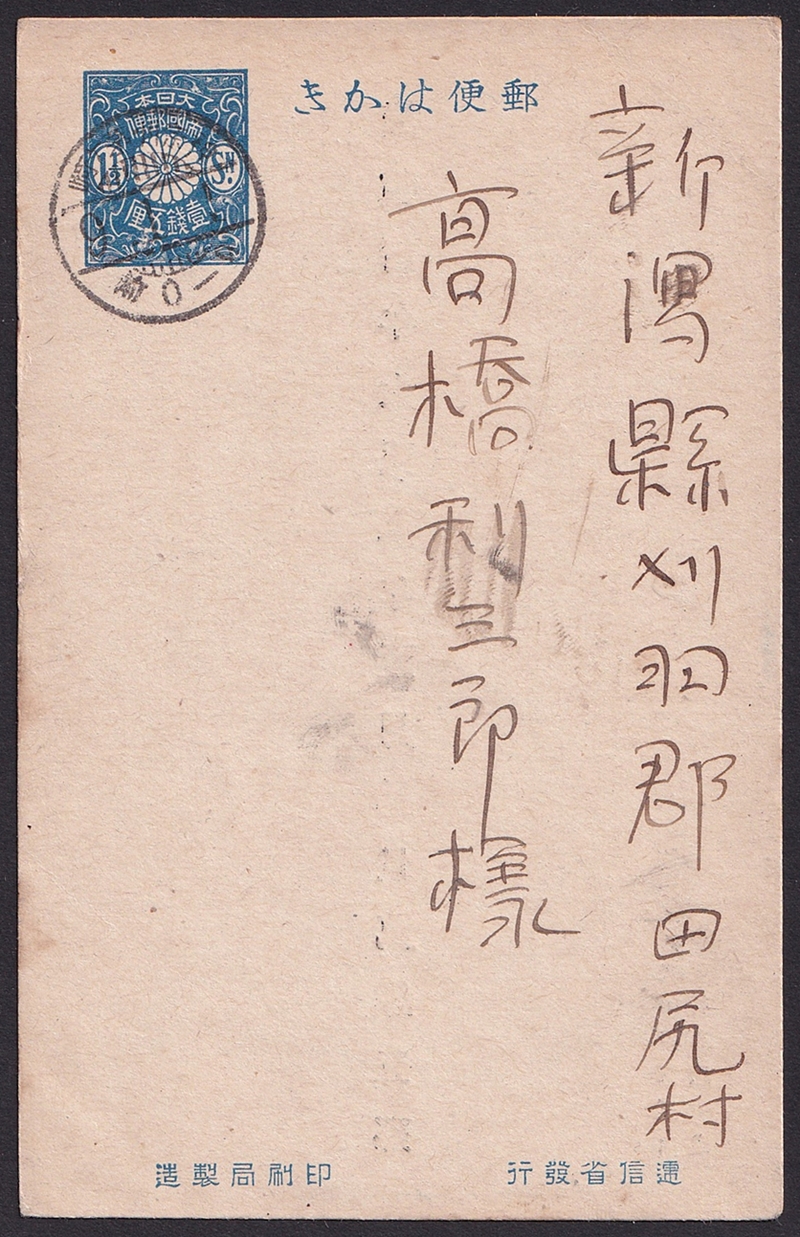 郵便はかき
新潟縣刈羽郡田尻村
高橋利三郎様
大日本
帝國郵便
1½ Sn.
壹錢五厘
遞信省發行
印刷局製造